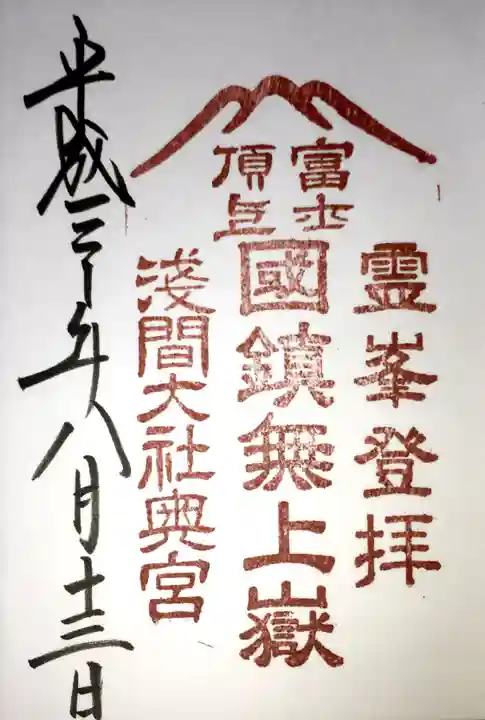 霊峯登拝
富士
頂上
國鎮無上嶽
浅間大社奥宮
平成三十年八月十三日